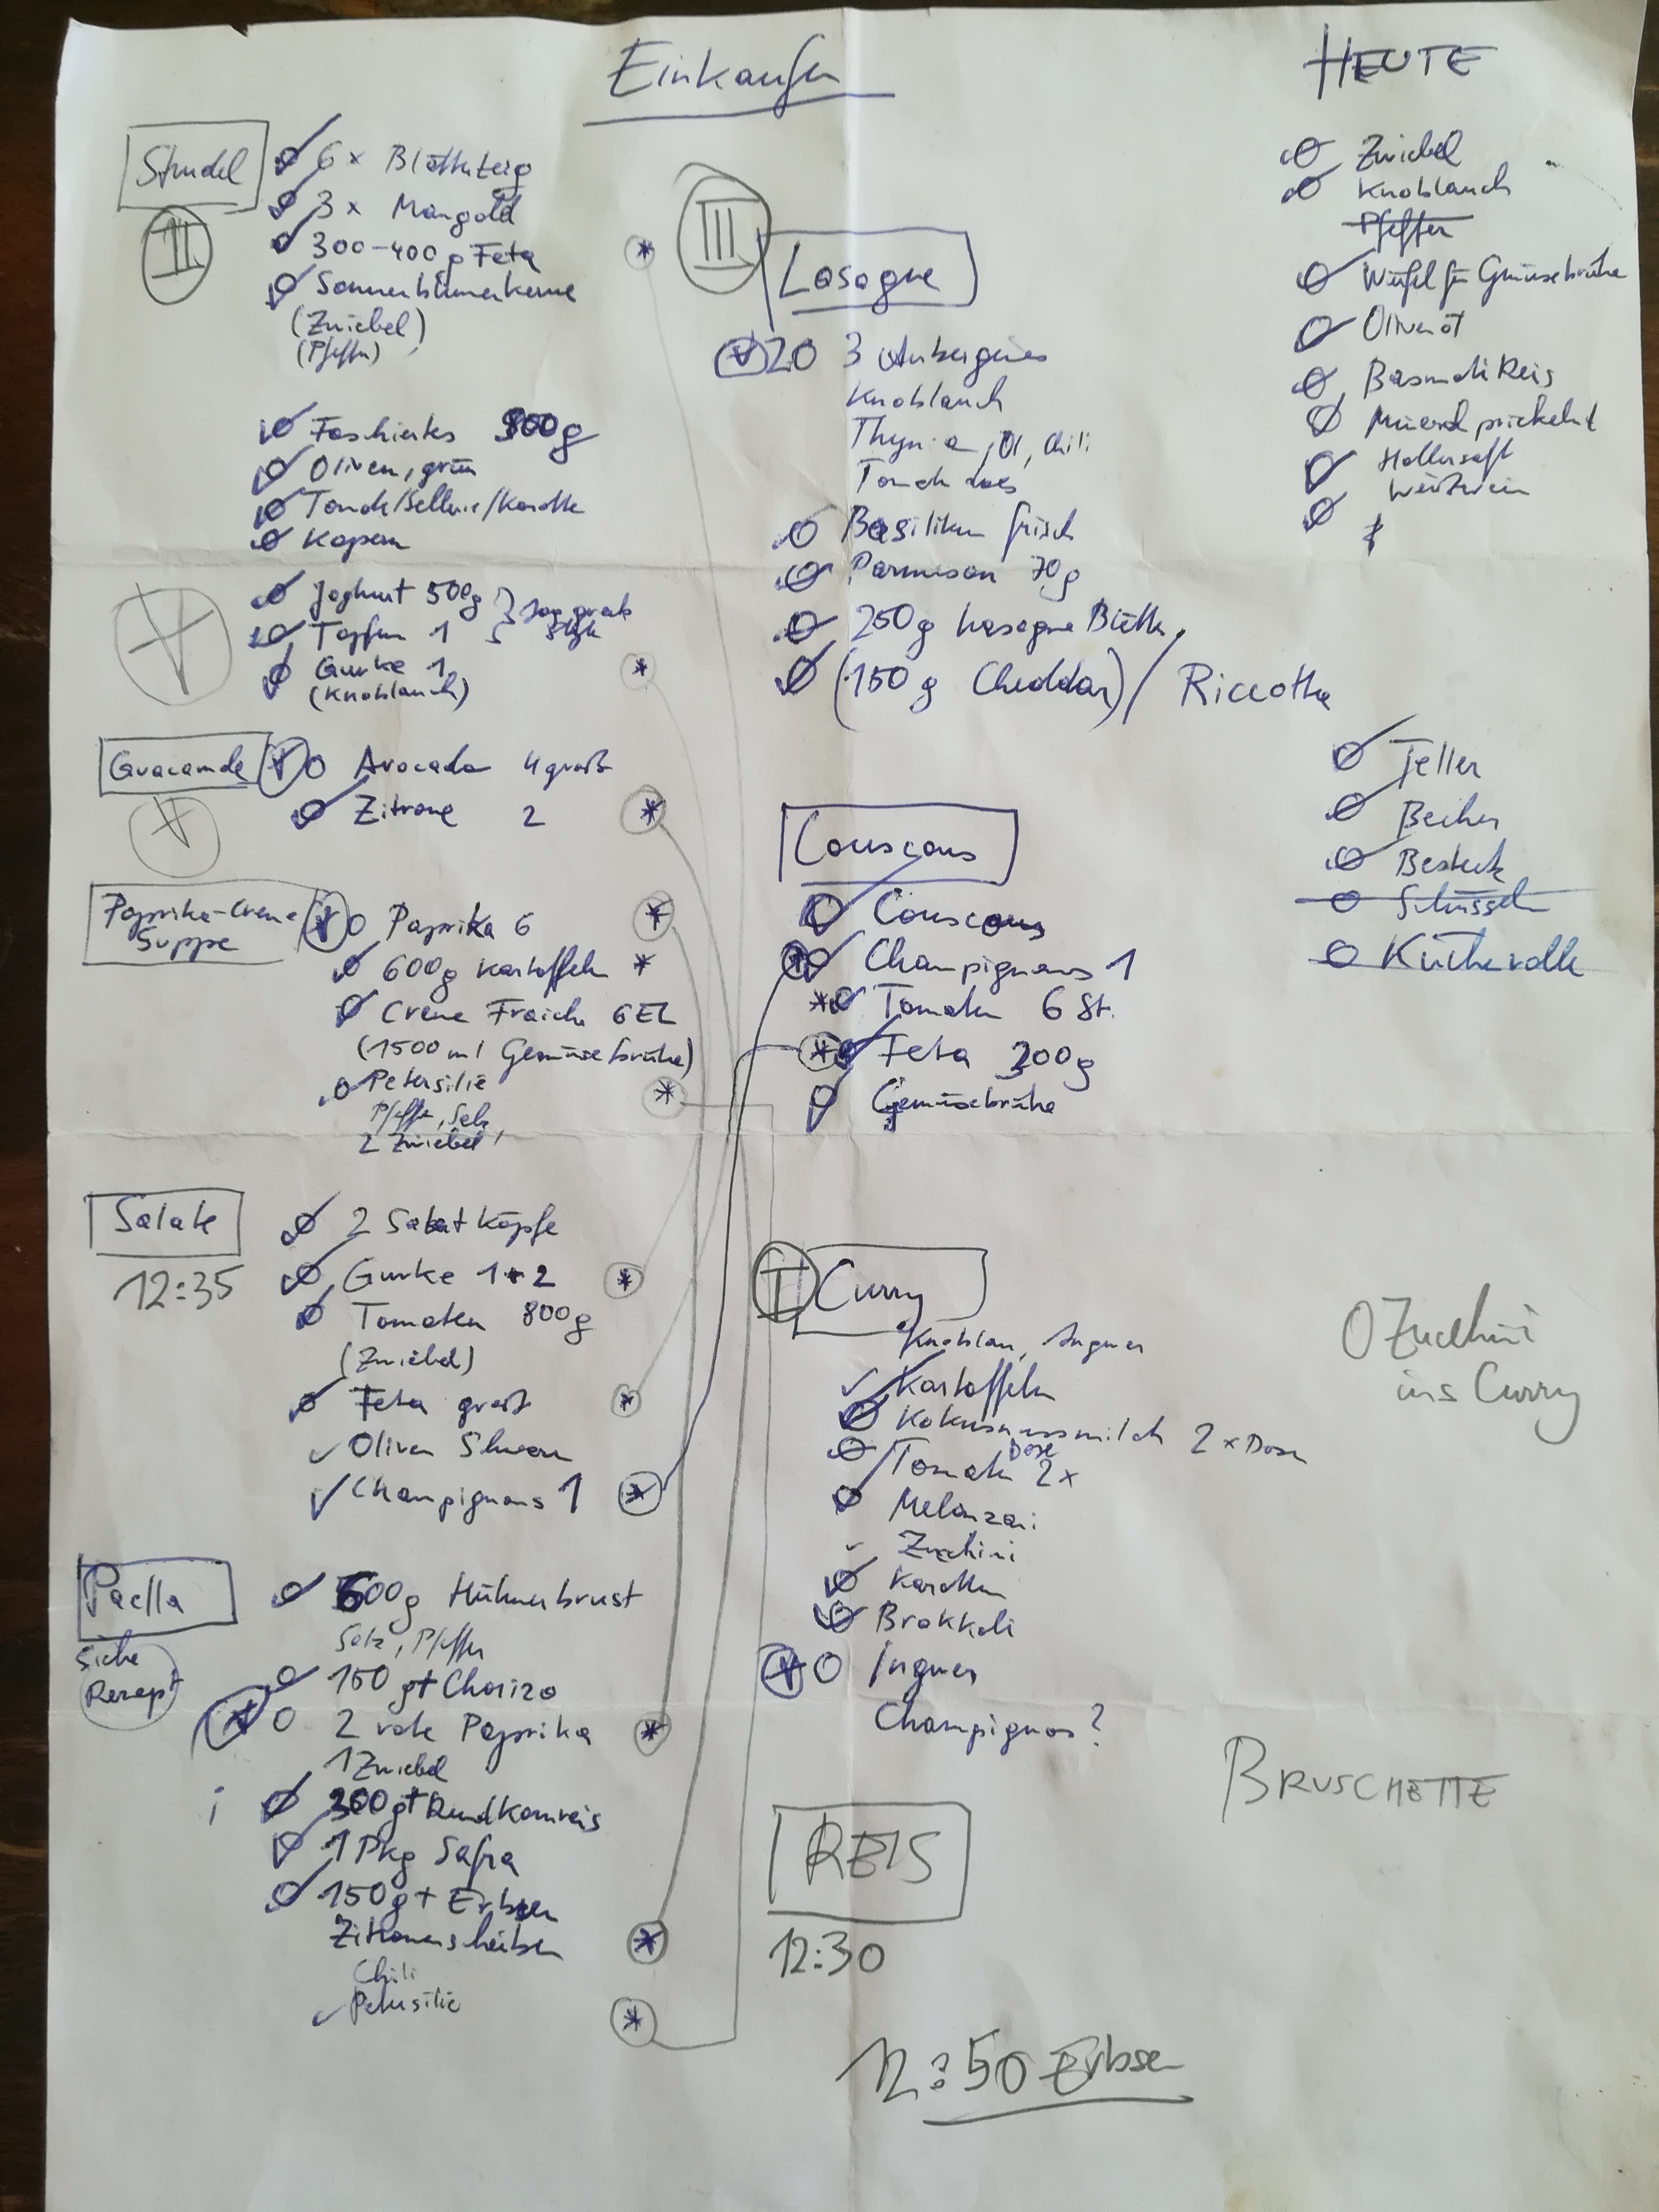 Einkaufen
Strudel
II
6 x Blätterteig
3 x Mangold
300-400g Feta *
Sonnenblumenkerne
(Zwiebel)
(Pfeffer)
Faschiertes 800g
Oliven, grün
Tomate/Sellerie/Karotte
Kapern
Joghurt 500g
Topfen 1
Gurke 1 *
(Knoblauch)
Guacamole
Avocado 4 groß
Zitrone 2 *
Paprika-Creme
Suppe
Paprika 6 *
600g Kartoffeln *
Creme Fraiche 6 EL
(1500 ml Gemüsebrühe)
Petersilie *
Pfeffer, Salz,
2 Zwiebel
Salate
12:35
2 Salat Köpfe
Gurke 1+2 *
Tomaten 800g
(Zwiebel)
Feta groß *
Oliven Schwarz
Champignons 1 *
Paella
Siehe
Rezept
600g Hühnerbrust
Salz, Pfeffer
150 g+ Chorizo
2 rote Paprika *
1 Zwiebel
300 g+ Rundkornreis
1 Pkg Safran
150g+ Erbsen
Zitronenscheiben *
Chili
Petersilie *
III
Lasagne
20 3 Auberginen
Knoblauch
Thymian, Öl, Chili
Basilikum frisch
Parmesan 70g
250g Lasagne Blätter
(150 g Cheddar) / Riccotta
Couscous
Couscous
* Champignons 1
* Tomaten 6 St.
* Feta 200g
Gemüsebrühe
I
Curry
Knoblau, Ingwer
Kartoffeln
Kokusnussmilch 2 x Dosen
Dose
Tomate 2x
Melanzani
Zucchini
Karotten
Brokkoli
Ingwer
Champignons?
REIS
12:30
12:50 Erbsen
HEUTE
Zwiebel
Knoblauch
Pfeffer
Würfel für Gemüsebrühe
Olivenöl
Basmati Reis
Mineral prickelnd
Hollersaft
Weißwein
Teller
Becher
Besteck
Schüsseln
Küchenrolle
O Zucchini
ins Curry
BRUSCHETTE